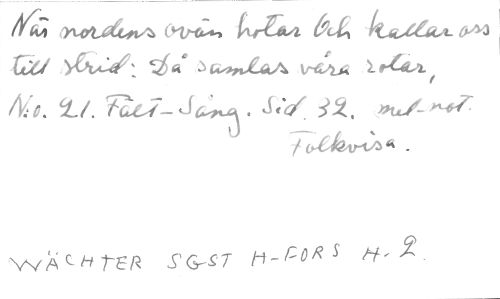 När nordens ovän hotar Och kallar oss
till strid: Då samlas våra rotar,
N:o. 21. Fält-Sång. Sid. 32. mel-not.
Folkvisa.
WÄCHTER SGST H-FORS H-2.